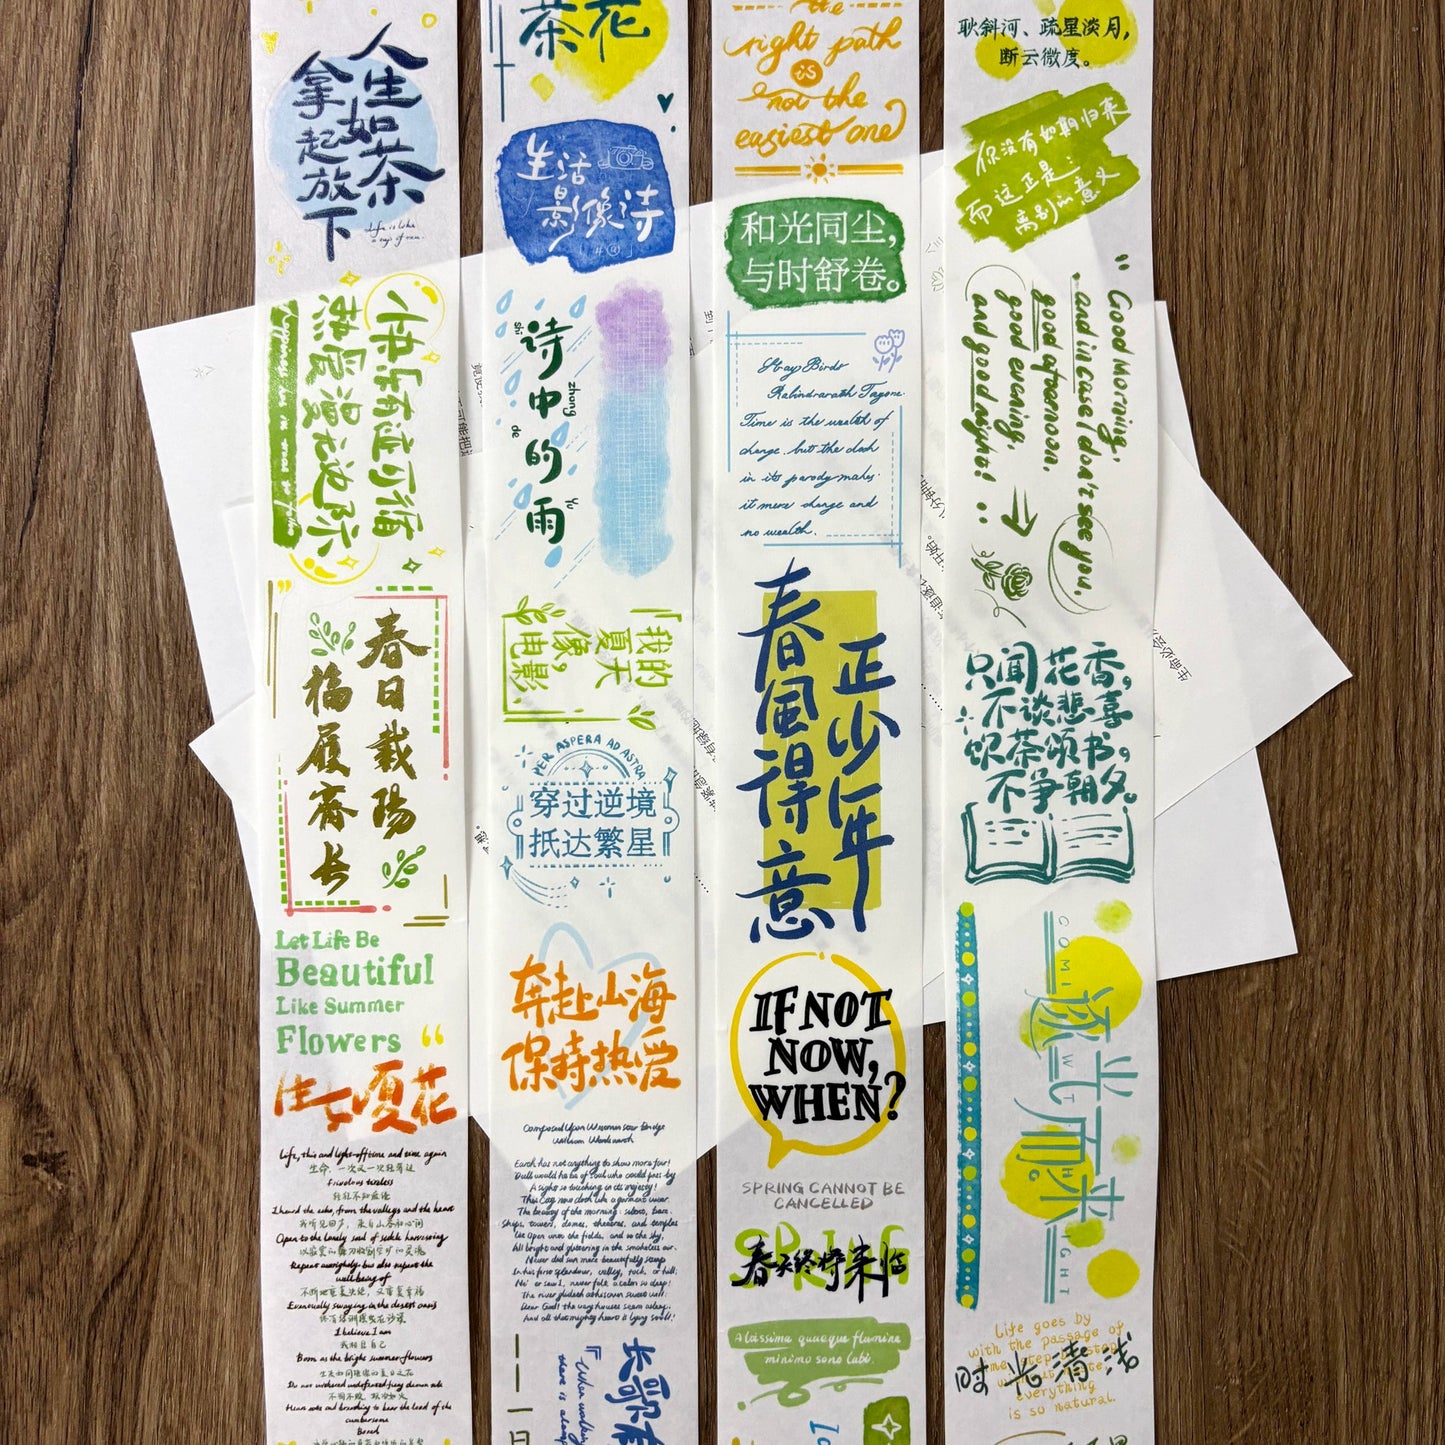 人生如茶
拿起放下
Life is like
a cup of tea.
快乐有迹可循
热爱漫无边际
春日载陽
福履齊长
Let Life Be
Beautiful
Like Summer
Flowers
生如夏花
Life, thin and light-off time and time again
生命，一次又一次轻薄过
Frivolous tireless
轻狂不知疲倦
I heard the echo, from the valleys and the heart
我听见回声，来自山谷和心间
Open to the lonely soul of sickle harvesting
以寂寞的镰刀收割空旷的灵魂
Repeat outrightly, but also repeat the
well-being of
不断地重复决绝，又重复幸福
Eventually swaying in the desert oasis
终有绿洲摇曳在沙漠
I believe I am
我相信自己
Born as the bright summer flowers
生来如同璀璨的夏日之花
Do not withered undefeated fiery demon rule
不凋不败，妖冶如火
Heart rate and breathing to bear the load of the
cumbersome
Bored
茶花
生活
影像诗
诗中的雨
shī
zhong
de
Yǔ
「我的
夏天
像，
电影
PER ASPERA AD ASTRA
穿过逆境
抵达繁星
奔赴山海
保持热爱
Composed Upon Westminster Bridge
William Wordsworth
Earth has not anything to show more fair:
Dull would he be of soul who could pass by
A sight so touching in its majesty:
This City now doth like a garment wear
The beauty of the morning: silent, bare,
Ships, towers, domes, theatres, and temples
lie Open unto the fields, and to the sky,
All bright and glittering in the smokeless air.
Never did sun more beautifully steep
In his first splendour, valley, rock, or hill;
Ne'er saw I, never felt, a calm so deep!
The river glideth at his own sweet will:
Dear God! the very houses seem asleep;
And all that mighty heart is lying still!
长歌有
『When walking
there is along
一日
the
right path
is
not the
easiest one
和光同尘，
与时舒卷。
Stray Birds
Rabindranath Tagore
Time is the wealth of
change, but the clock
in its parody makes
it mere change and
no wealth.
春風得意
正少年
IF NOT
NOW,
WHEN?
SPRING CANNOT BE
CANCELLED
SPRING
春天终将来临
Altissima quaeque flumina
minimo sono labi.
耿斜河、疏星淡月，
断云微度。
你没有如期归来
而这正是
离别的意义
"Good morning,
and in case I don't see you,
good afternoon,
good evening,
and good night!
只闻花香，
不谈悲喜
饮茶颂书，
不争朝夕。
逐光而来
COM
WITH
LIGHT
Life goes by
with the passage of
time step by step
everything
is so natural.
时光清浅